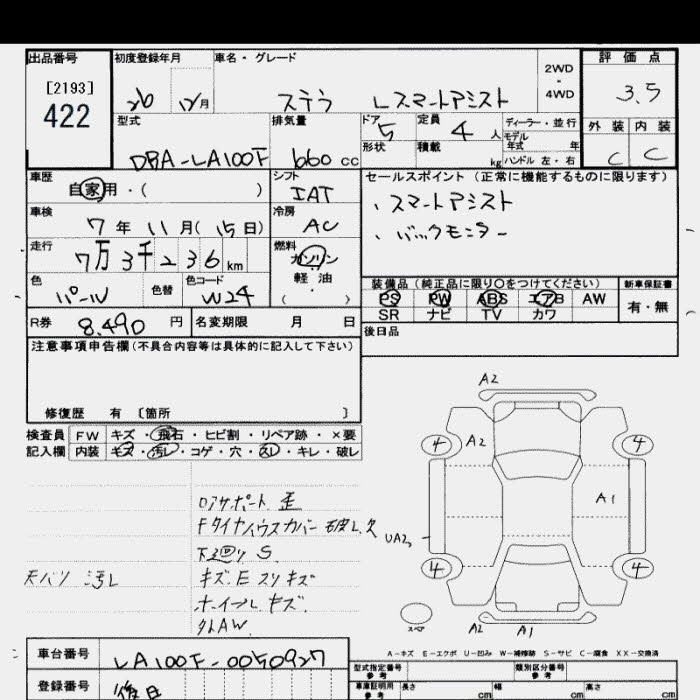 出品番号 初度登録年月 車名・グレード 2WD・4WD 評価点
[2193]
422
26 12/月 ステラ Lスマートアシスト 3.5
型式 排気量 ドア 5 定員 4人 ディーラー・並行 外装 内装
モデル年式 年
形状 積載 kg ハンドル 左・右
DBA-LA100F 660cc C C
車歴 シフト セールスポイント(正常に機能するものに限ります)
自家用・( ) IAT
、スマートアシスト
車検 冷房
7年11月(15日) AC
、バックモニター
走行 燃料
7万3千236km ガソリン
軽油
( ・ )
色 色替 色コード
パール W24
装備品(純正品に限り○をつけてください) 新車保証書
PS PW ABS エアB AW 有・無
SR ナビ TV カワ
R券 8,490円 名変期限 月 日
後日品
注意事項申告欄(不具合内容等は具体的に記入して下さい)
修復歴 有 〔箇所 〕
検査員 FW キズ・飛石・ヒビ割・リペア跡・×要
記入欄 内装 キズ・汚レ・コゲ・穴・スレ・キレ・破レ
A2
4 A2 4
A1
UA2
4 4
スペア
A2 A1
ロアサポート 歪
Fタイヤハウスカバー 破レ,欠
下廻り S
天バリ 汚レ
キズ E スリキズ
ホイール キズ
外AW
A-キズ E-エクボ U-凹み W-補修跡 S-サビ C-腐食 XX-交換済
車台番号 LA100F-0050927
型式指定番号 参考 類別区分番号 参考
登録番号 後日
車庫証明用 参考 長さ cm 幅 cm 高さ cm